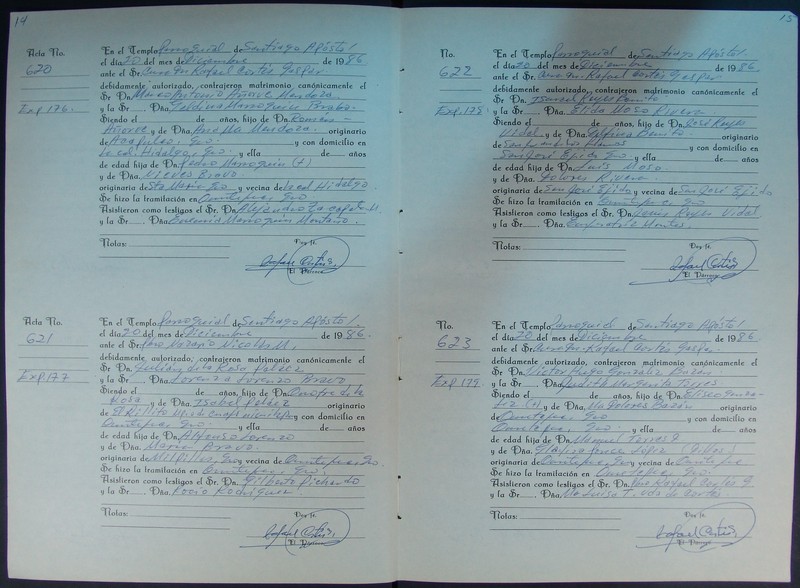 14
Acta No.
620
Exp. 176.
En el Templo Parroquial de Santiago Apóstol
el día 20 del mes de Diciembre de 1986
ante el Sr. Cura Dn. Rafael Cortés Gaspar
debidamente autorizado, contrajeron matrimonio canónicamente el
Sr. Dn. Marco Antonio Añorve Mendoza
y la Sr. Marroquín Bravo
Siendo el de años, hijo de Dn. Román
Añorve y de Dña. Mendoza originario
de Acapulco, Gro y con domicilio en
Col. Hidalgo, Gro y ella de años
de edad hija de Dn. Pedro Marroquín (+)
y de Dña. Nieves Bravo
originaria de Sta María Gro y vecina de Col Hidalgo
Se hizo la tramitación en Ometepec, Gro
Asistieron como testigos el Sr. Dn. Alejandro
y la Sr. Dña. Marroquín Montaño
Notas: Doy fe.
Rafael Cortés
El Párroco
Acta No.
621
Exp. 177
En el Templo Parroquial de Santiago Apóstol
el día 20 del mes de Diciembre de 1986
ante el Sr. Nicolás M.
debidamente autorizado, contrajeron matrimonio canónicamente el
Sr. Dn. Julián de la Rosa Peláez
y la Sr. Lorenza Lorenzo Bravo
Siendo el de años, hijo de Dn. Onofre de la
Rosa y de Dña. Isabel Peláez originario
de y con domicilio en
Ometepec, Gro y ella de años
de edad hija de Dn. Alfonso Lorenzo
y de Dña. María Bravo
originaria de Gro y vecina de Ometepec, Gro
Se hizo la tramitación en Ometepec, Gro
Asistieron como testigos el Sr. Dn. Gilberto Pichardo
y la Sr. Dña. Rocío Rodríguez
Notas: Doy fe.
Rafael Cortés
El Párroco
15
No.
622
Exp. 178
En el Templo Parroquial de Santiago Apóstol
el día 20 del mes de Diciembre de 1986
ante el Sr. Cura Dn. Rafael Cortés Gaspar
debidamente autorizado, contrajeron matrimonio canónicamente el
Sr. Dn. Ismael Reyes Benito
y la Sr. Elida Moso Rivera
Siendo el de años, hijo de Dn. José Reyes
Vidal y de Dña. Benito originario
de San y con domicilio en
San José Ejido Gro y ella de años
de edad hija de Dn. Luis Moso
y de Dña. Dolores Rivera
originaria de San José Ejido y vecina de San José Ejido
Se hizo la tramitación en Ometepec, Gro
Asistieron como testigos el Sr. Dn. Reyes Vidal
y la Sr. Dña. Montes
Notas: Doy fe.
Rafael Cortés
El Párroco
No.
623
Exp. 179.
En el Templo Parroquial de Santiago Apóstol
el día 20 del mes de Diciembre de 1986
ante el Sr. Cura Dn. Rafael Cortés Gaspar
debidamente autorizado, contrajeron matrimonio canónicamente el
Sr. Dn. Víctor Hugo González Bazán
y la Sr. Judith Margarita Torres
Siendo el de años, hijo de Dn. Eliseo Gonzá-
lez (+) y de Dña. Ma Dolores Bazán originario
de Ometepec, Gro y con domicilio en
Ometepec, Gro y ella de años
de edad hija de Dn. Manuel Torres
y de Dña. López
originaria de Ometepec, Gro y vecina de Ometepec
Se hizo la tramitación en Ometepec, Gro
Asistieron como testigos el Sr. Dn. Rafael Cortés G.
y la Sr. Dña. Ma Luisa T. vda de Cortés
Notas: Doy fe.
Rafael Cortés
El Párroco